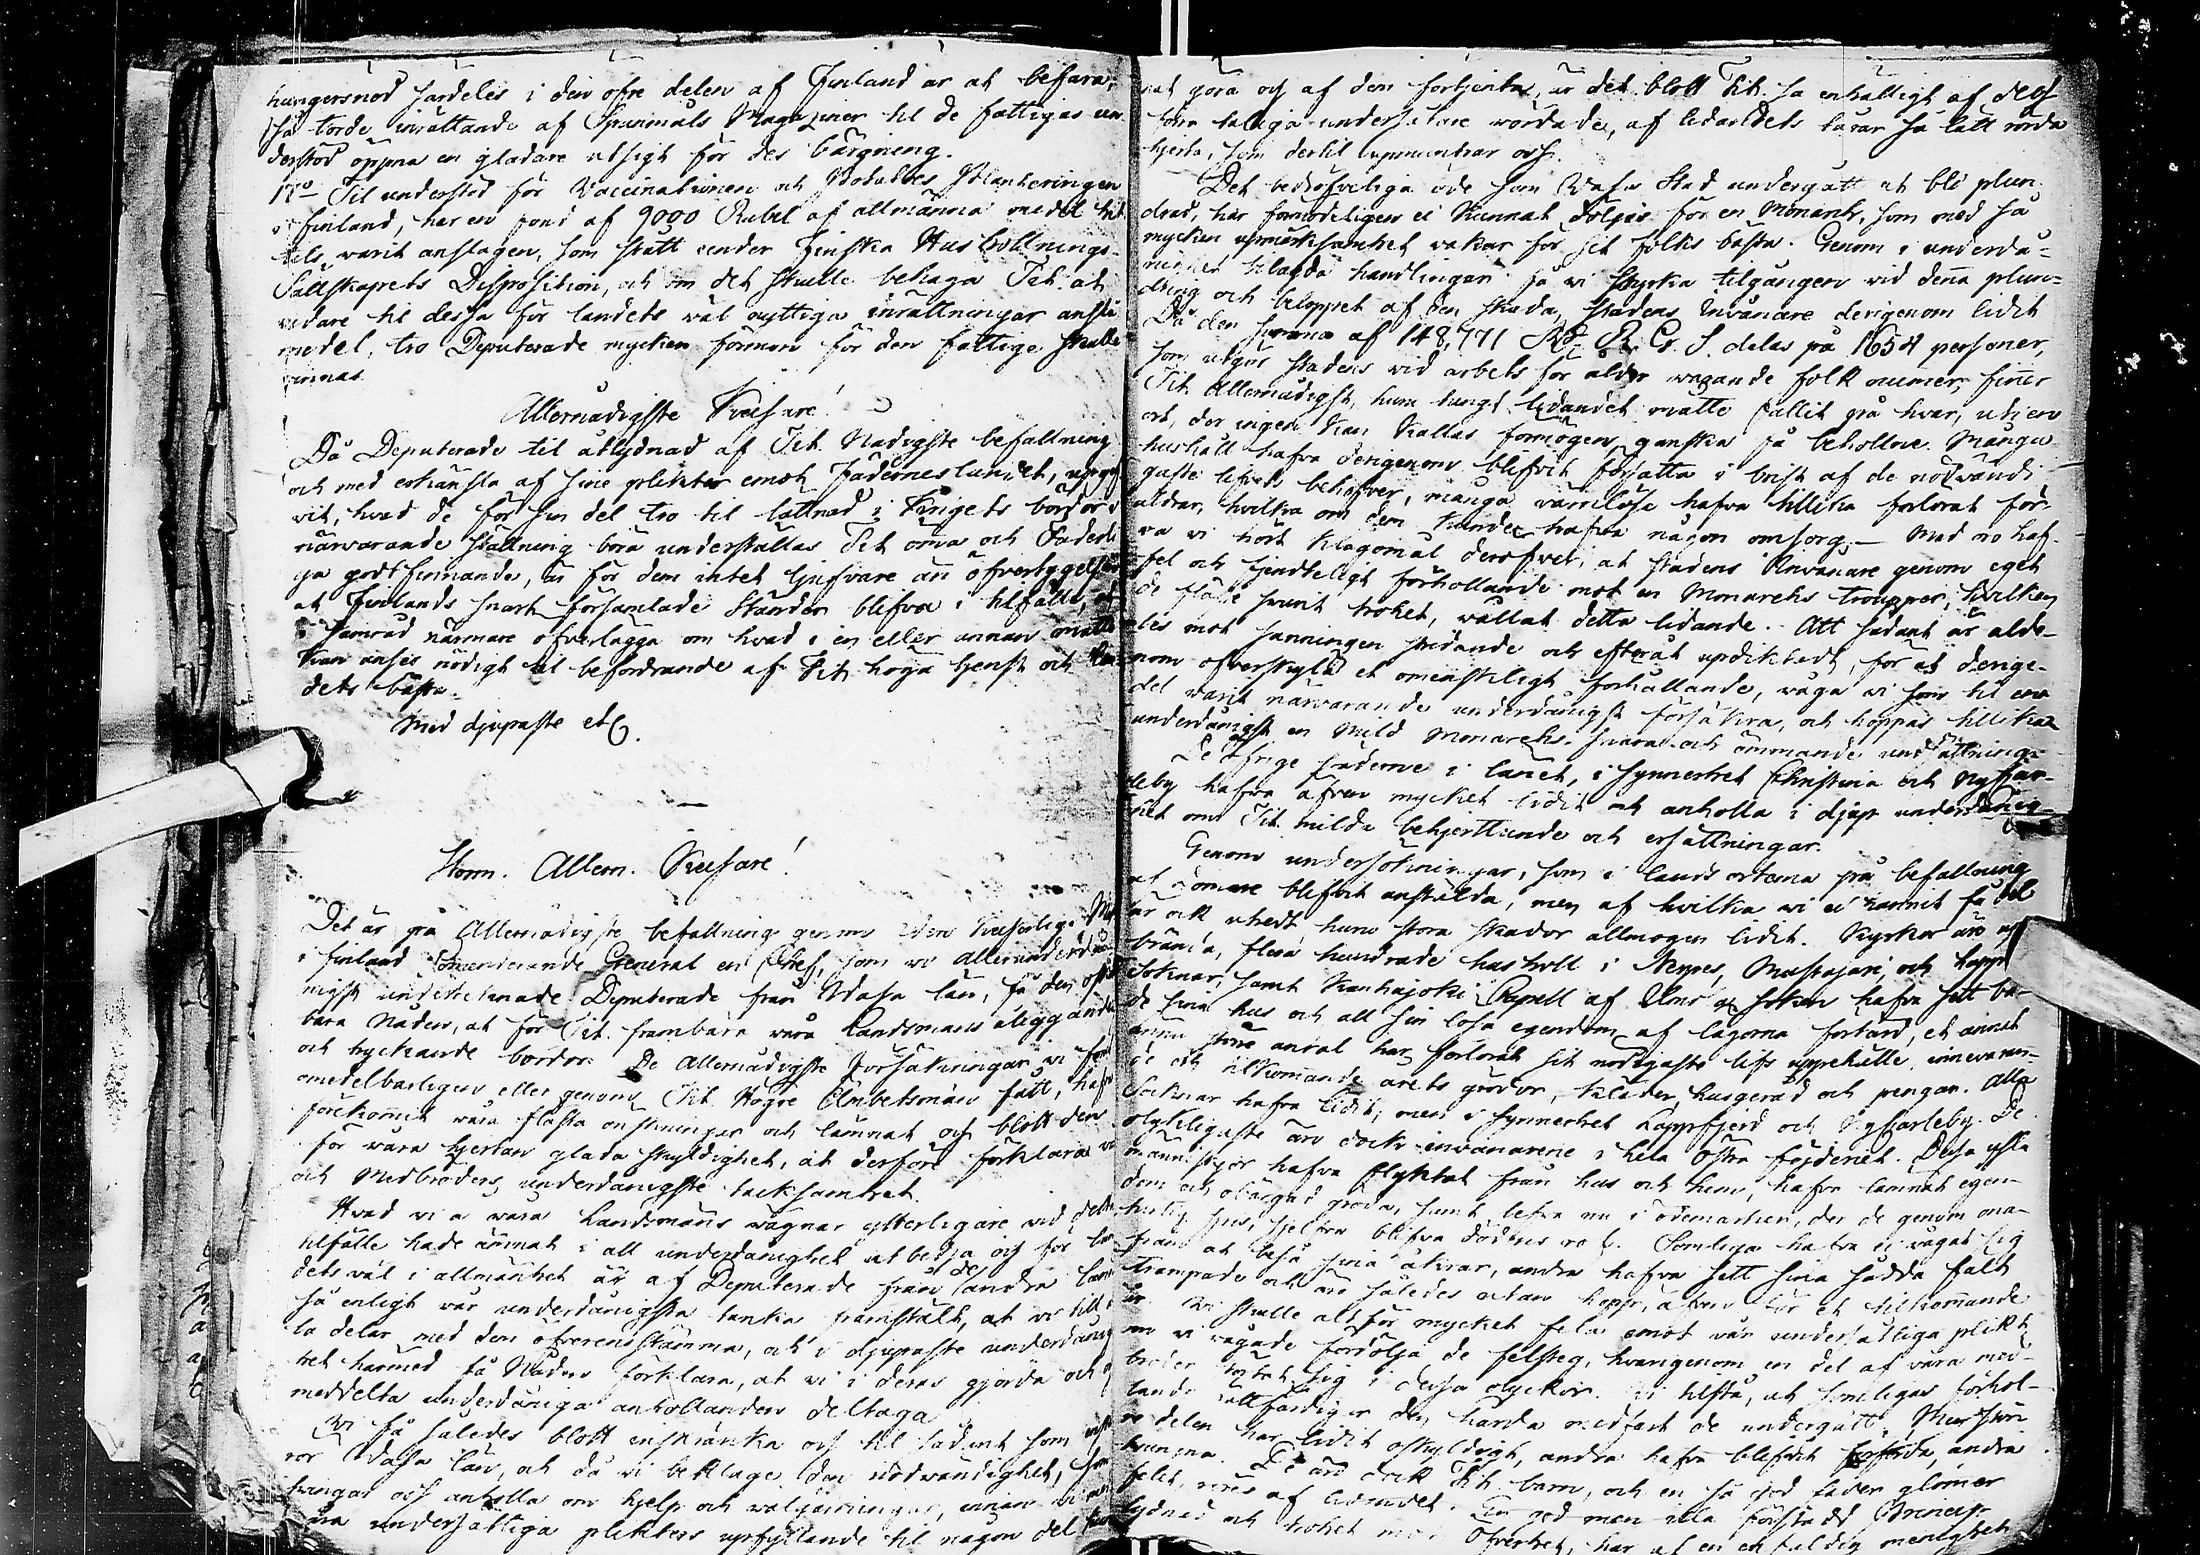 hungersnöd särdeles i den öfre delen af Finland är at befara,
så torde inrättande af Spanmåls Magaziner til de fattigas un-
derstöd öppna en gladare utsigt för des bärgning.
17o Til understöd för Vaccinationen och Potatoes Planteringen
i Finland, har en fond af 9000 Rubel af allmänna medel til
dels varit anslagen, som stått under Finska Hushollnings-
Sällskapets Disposition, och om det skulle behaga Tit. at
vidare til dessa för landets väl nyttiga inrättningar anslå
medel, tro Deputerade mycken förmon för den fattige skulle
vinnas.
Allernådigste Kejsare!
Då Deputerade til åtlydnad af Tit. Nådigste befallning
och med erhänsla af sine plikter emot Fäderneslandet, upgif
vit, hvad de för sin del tro til lättnad i Tingets bördor i
närvarande ställning böra underställas Tit ömma och Faderli
ga godtfinnande, är för dem intet ljufvare än öfvertygelsen
at Finlands snart församlade Ständer blifva i tilfälle, at
i samråd närmare öfverlägga om hvad i en eller annan måtto
kan anses nödigt til befordrande af Tit. höga tjenst och lan
dets bästa.
Med djupaste etc.
Storm. Allern. Kejsare!
Det är på Allernådigste befallning genom den Kejserlige
i Finland Commenderande General en Chef, som vi allerunderdå
nigst undertecknade Deputerade från Wasa län, få den
bara Nåden, at för Tit. frambära våra Landsmäns åliggande
och tryckande bördor. De Allernådigste Försäkringar vi
omedelbarligen eller genom Tit. Högre Embetsmän fått, haf
förekommit våra flästa önskningar och lämnat oss blott den
för våra hjertan glada skyldighet, at derföre förklara vår
och Medbröders underdånigste tacksamhet.
Hvad vi å våra Landsmäns vägnar ytterligare vid detta
tilfälle hade ämnat i all underdånighet utbedja oss för lan
dets väl i allmänhet är af Deputerade från de andra län
så enligt vår underdånigsta tanka framstält, at vi till
la delar med dem öfverensstämma, och i djupaste underdånig
het härmed få Nåden förklara, at vi i deras gjorda och
meddelta underdåniga anhollanden deltaga.
Vi få således blott inskränka oss til sådant som
rör Wasa län, och då vi beklage den nödvändighet, som
tvingar oss anholla om hjelp och välgärningar, innan vi
våra undersåtliga plikters upfyllande til någon del
nat göra oss af dem förtjenta, är det blott Tit. så enhälligt af des
förr talriga undersåtare vördade, af lidandets tårar så lätt rörda
hjerta, som dertil upmuntrar oss.
Det bedröfveliga öde som Wasa Stad undergått at bli plun
drad, har förmodeligen ei kunnat döljas för en Monark, som med så
mycken upmärksamhet vakar för sit folks bästa. Genom i underdå-
nighet bilagda handlingar få vi styrka tilgången vid denna plun-
dring och beloppet af den skada, stadens Invånare derigenom lidit
Då den summa af 148,771 Rd. R. Gs. S. delas på 1654 personer,
som utgör stadens vid arbets för ålder varande folk numer, finner
Tit. Allernådigst, huru tungt lidandet måtte fallit på hvar, uti en
ort, der ingen kan kallas förmögen, ganska få behollne. Många
hushåll hafva derigenom blifvit försatta i brist af de nödvändi-
gaste lifvets behofver, många värnlösa hafva tillika förlorat för-
äldrar, hvilka om dem kunde hafva någon omsorg. — Med oro haf-
va vi hört klagomål deröfver, at stadens Invånare genom eget
fel och fiendteligt förhollande mot en Monarchs trouppar, hvilken
de städse svurit trohet, vållat detta lidande. Att sådant är alde-
les mot sanningen stridande och efteråt updiktadt, för at derige-
nom öfverskyla et omenskligt förhållande, våga vi som til en
del varit närvarande underdånigst försäkra, och hoppas tillika
underdånigst en mild Monarchs svara och ömmande undsättning.
De öfrige städerne i länet, i synnerhet Christina och Nykar-
leby hafva äfven mycket lidit och anholla i djup underdånig-
het om Tit. milda behjertande och ersättningar.
Genom undersökningar, som i landsorterna på befallning
af blifvit anstälda, men af hvilka vi ei hunnit få del
är ock utredt, huru stora skador allmogen lidit. Kyrkor äro up
brända, flera hundrade hus holl i Nerpes, Mustasari, och Lappo
Soknar, samt Kauhajoki Capell af Ilmola sokn hafva sett bå-
de sina hus och all sin lösa egendom af lågorna förtärd, et annat
ännu större antal har förlorat sit nödigaste lifs uppehälle, innevaran-
de och tilkommande årets grödor, kläder, husgeråd och pengar. Alla
Soknar hafva lidit, men i synnerhet Lappfjerd och Nykarleby. De
olykligaste äro dock invånarne i hela Östra fögderiet. Dessa usla
människjor hafva flyktat från hus och hem, hafva lemnat egen-
dom och obärgad gröda, samt lefva nu i ödemarken, der de genom ona-
turlig spis, sjelfva blifva dödens rof. Somliga hafva ej vågat sig
fram at beså sina åkrar, andra hafva sett sina sådda fält
trampade och äro således utan hopp, äfven för et tilkommande
år. Vi skulle alt för mycket fela emot vår undersåtliga plikt,
om vi vågade fördölja de felsteg, hvarigenom en del af våra med-
bröder störtat sig i dessa olyckor. Vi tilstå, at somligas förhol-
lande rättfärdigar den hårda medfart de undergått. Men större
delen har lidit oskyldigt, andra hafva blifvit förförda, andra
tvungna. De äro dock Tit. barn, och en så god fader glömer
felet, rörs af lidandet. En god men illa förstådd Princip.
lydnad och trohet mot Öfverhet, har af en enfaldig menighet